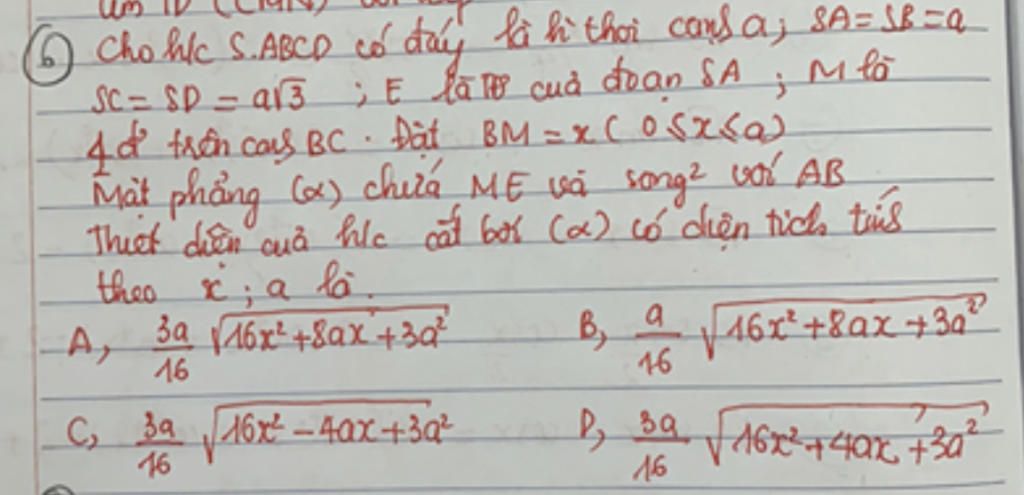 ⑥ Cho h/c S.ABCD có đáy là h̀ thoi cạnh a; SA = SB = a
SC = SD = a√3 ; E là TĐ của đoạn SA ; M là
1 đ' trên cạnh BC. Đặt BM = x (0 ≤ x ≤ a)
Mặt phẳng (α) chứa ME và song² với AB
Thiết diện của h/c cắt bởi (α) có diện tích tính
theo x ; a là.
A, 3a/16 √(16x² + 8ax + 3a²) B, a/16 √(16x² + 8ax + 3a²)
C, 3a/16 √(16x² - 4ax + 3a²) D, 3a/16 √(16x² + 4ax + 3a²)